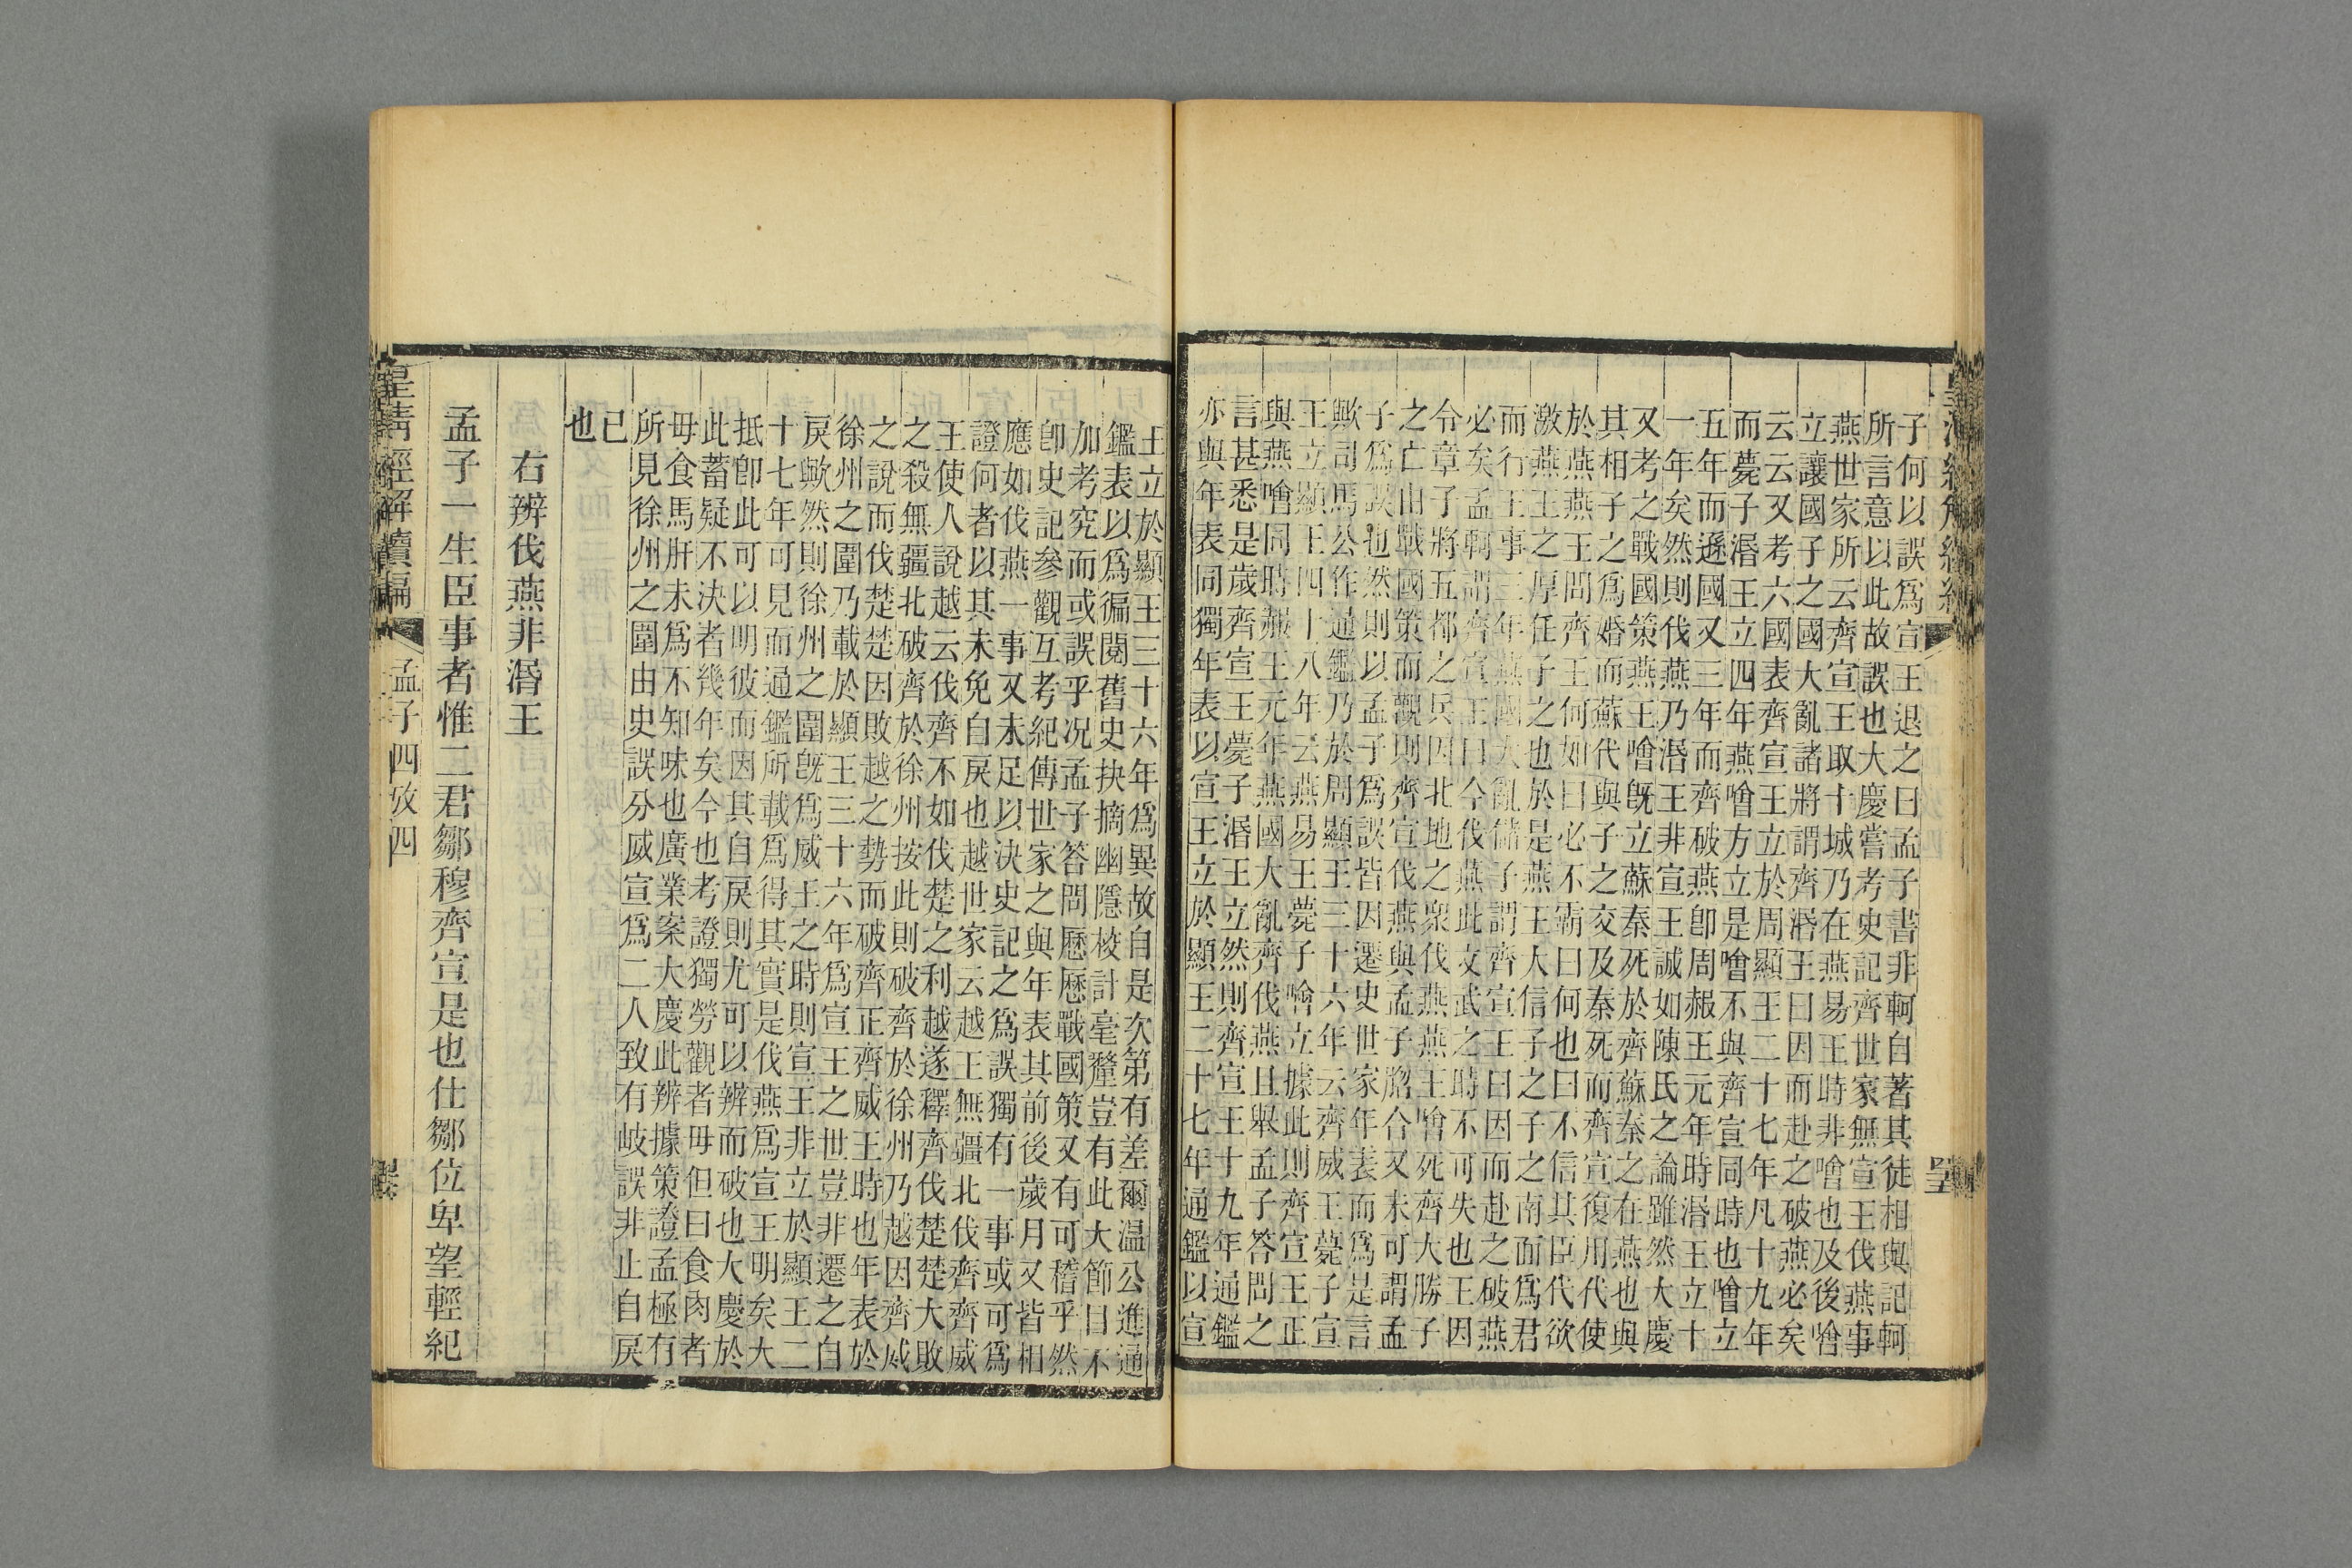 子何以誤爲宣王退之曰孟子書非軻自著其徒相與記軻
所言意以此故誤也大慶嘗考史記齊世家無宣王伐燕事
燕世家所云齊宣王取十城乃在燕易王時非噲也及後噲
立讓國子之國大亂諸將謂齊湣王曰因而赴之破燕必矣
云云又考六國表齊宣王立於周顯王二十七年凡十九年
而薨子湣王立四年燕噲方立是噲不與齊宣同時也噲立
五年而遜國又三年而齊破燕卽周赧王元年時湣王立十
一年矣然則伐燕乃湣王非宣王誠如陳氏之論雖然大慶
又考之戰國策燕王噲旣立蘇秦死於齊蘇秦之在燕也與
其相子之爲婚而蘇代與子之交及秦死而齊宣復用代使
於燕燕王問齊王何如曰必不霸曰何也曰不信其臣代欲
激燕王之厚任子之也於是燕王大信子之子之南面爲君
而行王事三年燕國大亂儲子謂齊宣王曰因而赴之破燕
必矣孟軻謂齊宣王曰今伐燕此文武之時不可失也王因
令章子將五都之兵因北地之衆伐燕燕王噲死齊大勝子
之亡由戰國策而觀則齊宣伐燕與孟子脗合又未可謂孟
子爲誤也然則以孟子爲誤皆因遷史世家年表而爲是言
歟司馬公作通鑑乃於周顯王三十六年云齊威王薨子宣
王立顯王四十八年云燕易王薨子噲立據此則齊宣王正
與燕噲同時赧王元年燕國大亂齊伐燕且舉孟子答問之
言甚悉是歲齊宣王薨子湣王立然則齊宣王十九年通鑑
亦與年表同獨年表以宣王立於顯王二十七年通鑑以宣
王立於顯王三十六年爲異故自是次第有差爾温公進通
鑑表以爲徧閱舊史抉摘幽隱校計毫釐豈有此大節目不
加考究而或誤乎况孟子答問歷歷戰國策又有可稽乎然
卽史記參觀互考紀傳世家之與年表其前後歲月又皆相
應如伐燕一事又未足以決史記之爲誤獨有一事或可爲
證何者以其未免自戾也越世家云越王無疆北伐齊齊威
王使人說越云伐齊不如伐楚之利越遂釋齊伐楚楚大敗
之殺無疆北破齊於徐州按此則破齊於徐州乃越因齊威
之說而伐楚楚因敗越之勢而破齊正齊威王時也年表於
徐州之圍乃載於顯王三十六年爲宣王之世豈非遷之自
戾歟然則徐州之圍旣爲威王之時則宣王非立於顯王二
十七年可見而通鑑所載爲得其實是伐燕爲宣王明矣大
抵卽此可以明彼而因其自戾則尤可以辨而破也大慶於
此蓄疑不決者幾年矣今也考證獨勞觀者毋但曰食肉者
毋食馬肝未爲不知味也廣業案大慶此辨據策證孟極有
所見徐州之圍由史誤分威宣爲二人致有岐誤非止自戾
已
也
右辨伐燕非湣王
孟子一生臣事者惟二君鄒穆齊宣是也仕鄒位卑望輕紀
皇清經解續編
孟子四攷四